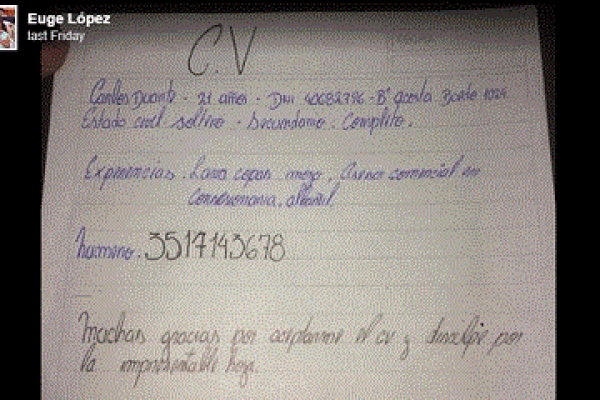 Euge López
last Friday
C.V
Carlos Duarte - 21 años - DNI 40682796 - Bº acosta
Estado civil soltero - Secundario. Completo.
Experiencias. Lava copas mozo, Asesor comercial en
Concesionaria, albañil
Numero. 3517143678
Muchas gracias por aceptarme el cv y disculpe por
la impresentable hoja.